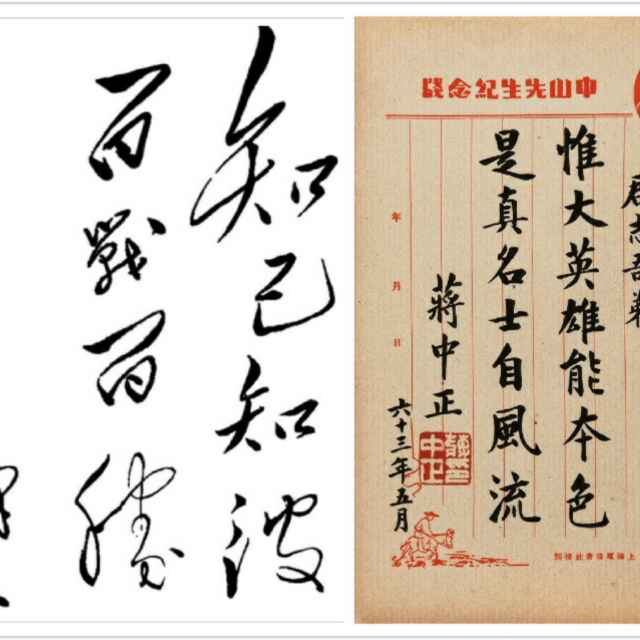 知己知彼
百戰百勝
中山先生紀念
惟大英雄能本色
是真名士自風流
蔣中正
六十三年五月
年 月 日